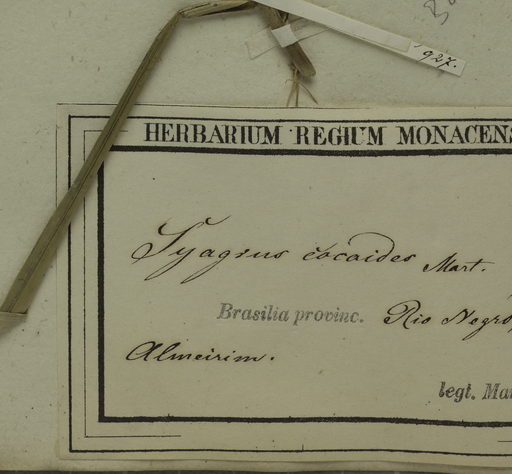 1927.
HERBARIUM REGIUM MONACENS
Syagrus cocoides Mart.
Brasilia provinc. Rio Negro,
Almeirim.
legt. Mar